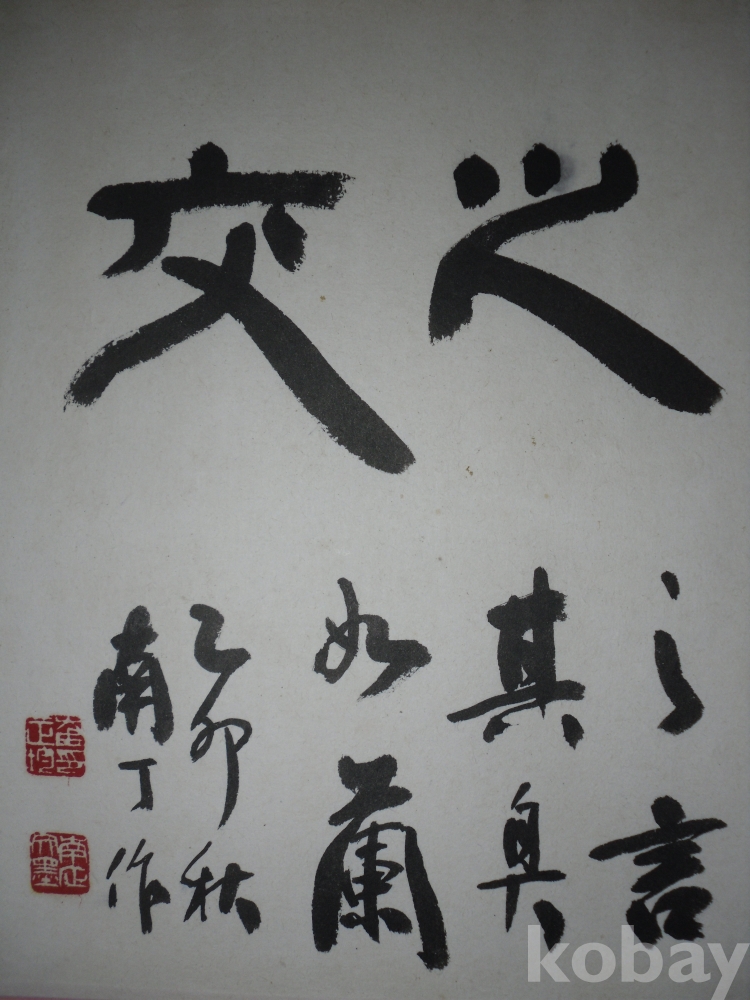 之交
之言
其臭
如蘭
乙卯秋
南丁作
kobay